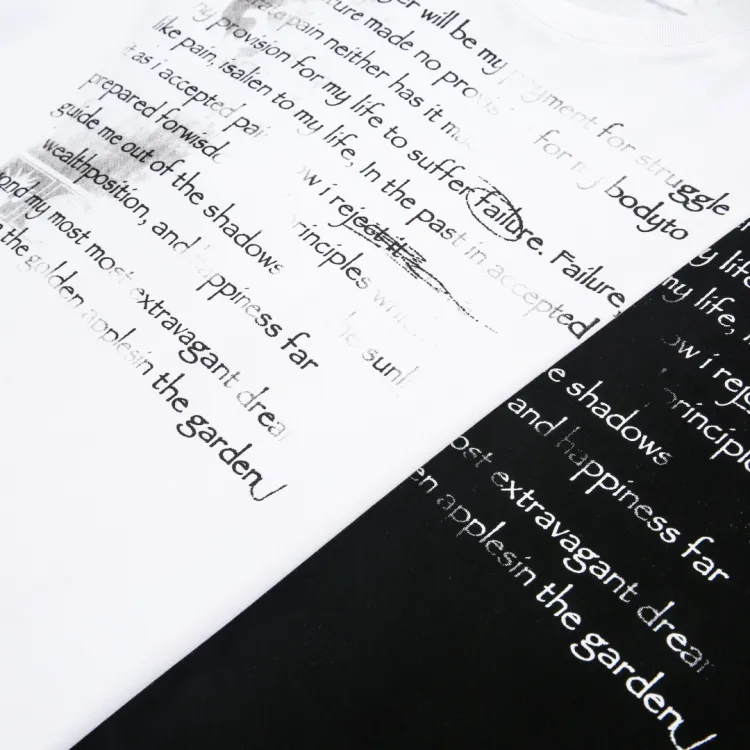 er will be my payment for struggle
ture made no provision for my bodyto
a pain neither has it
ry provision for my life to suffer failure. Failure,
like pain, isalien to my life, In the past in accepted
it as i accepted pai
ow i reject it
prepared forwisd
principles
guide me out of the shadows
wealthposition, and happiness far
ond my most most extravagant drea
the golden applesin the garden
y life
my life,
ow i reje
principle
e shadows
and happiness far
ost extravagant drea
en applesin the garden